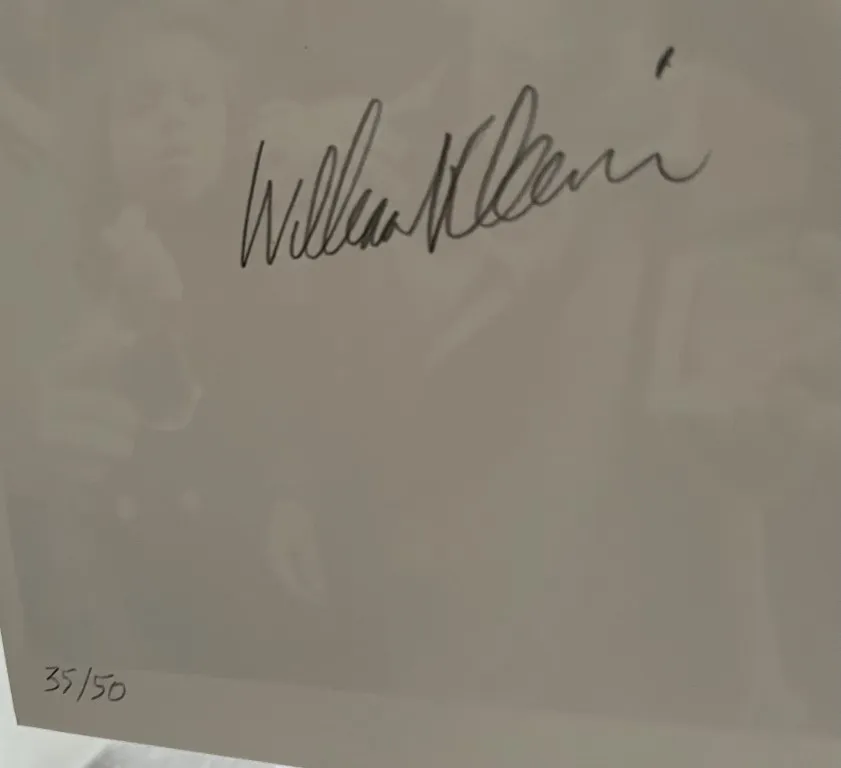 William Klein
35/50